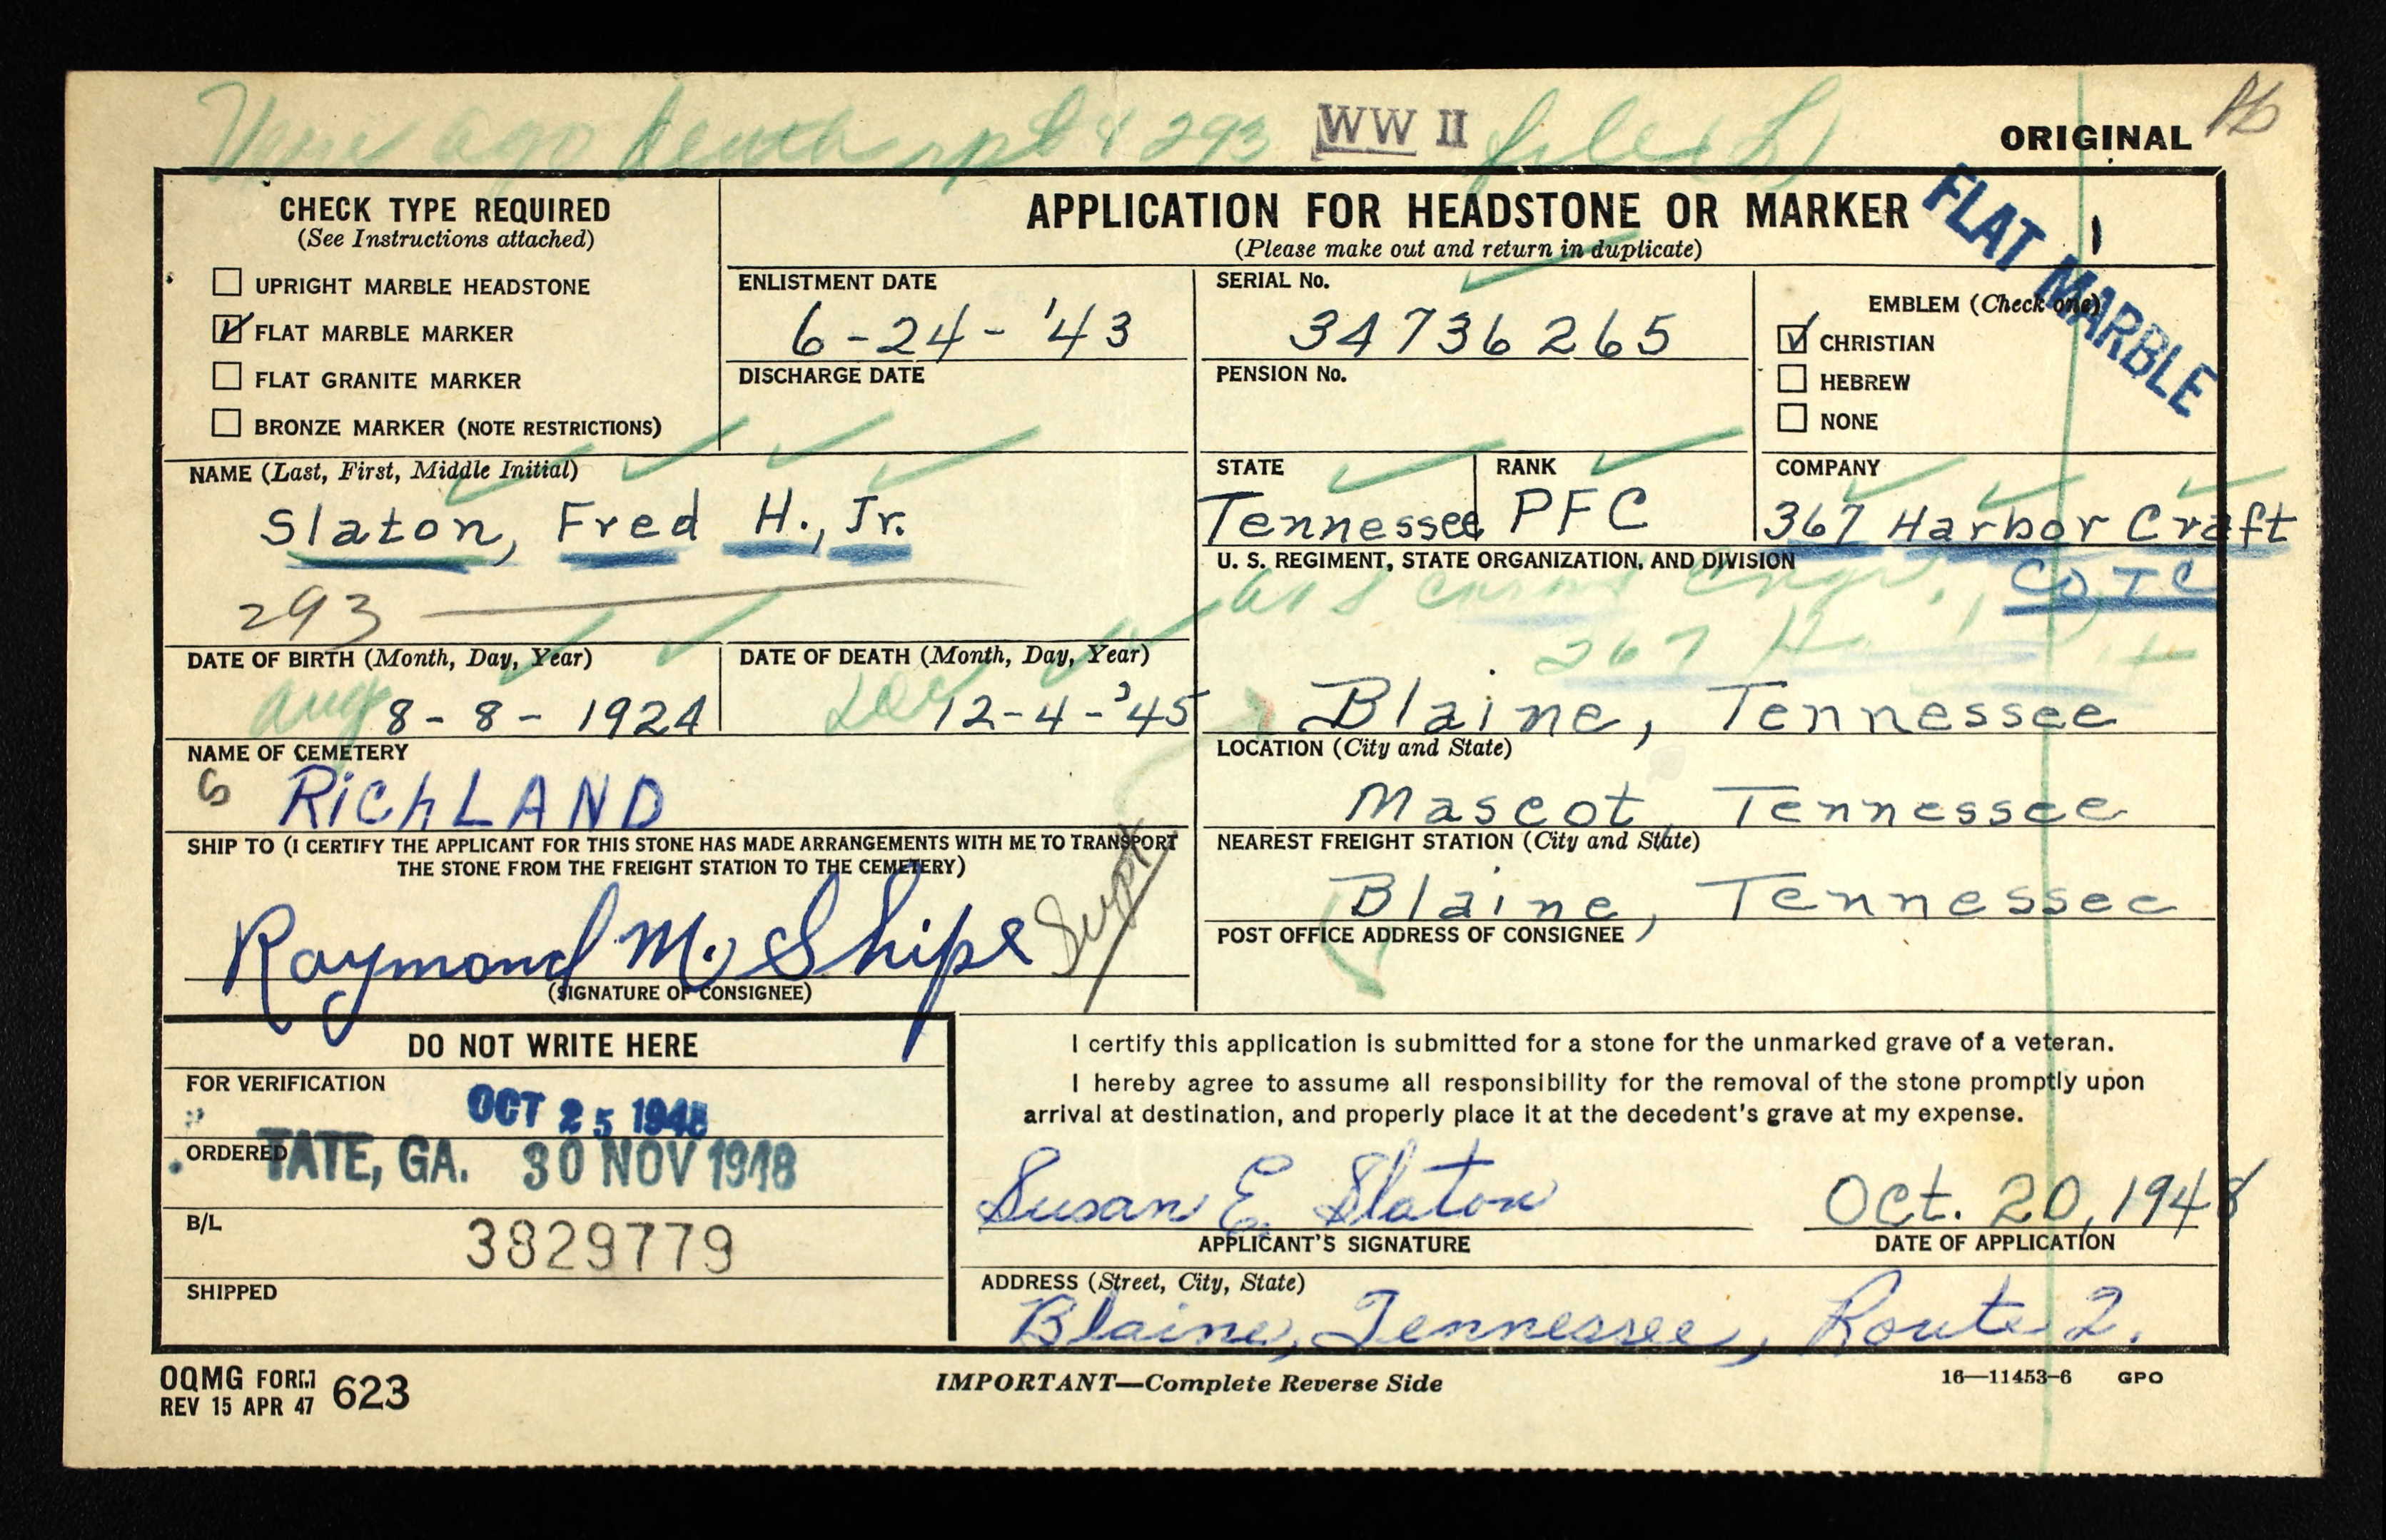 death rpt & 293 WW II file (L)
ORIGINAL
CHECK TYPE REQUIRED
(See Instructions attached)
UPRIGHT MARBLE HEADSTONE
FLAT MARBLE MARKER
FLAT GRANITE MARKER
BRONZE MARKER (NOTE RESTRICTIONS)
APPLICATION FOR HEADSTONE OR MARKER
(Please make out and return in duplicate)
FLAT MARBLE
ENLISTMENT DATE
6-24-'43
DISCHARGE DATE
SERIAL No.
34736265
PENSION No.
EMBLEM (Check one)
CHRISTIAN
HEBREW
NONE
NAME (Last, First, Middle Initial)
Slaton, Fred H., Jr.
293
STATE
Tennessee
RANK
PFC
COMPANY
367 Harbor Craft
U. S. REGIMENT, STATE ORGANIZATION, AND DIVISION
Co TC
267
DATE OF BIRTH (Month, Day, Year)
Aug 8-8-1924
DATE OF DEATH (Month, Day, Year)
Dec 12-4-'45
Blaine, Tennessee
NAME OF CEMETERY
RichLAND
LOCATION (City and State)
Mascot, Tennessee
SHIP TO (I CERTIFY THE APPLICANT FOR THIS STONE HAS MADE ARRANGEMENTS WITH ME TO TRANSPORT
THE STONE FROM THE FREIGHT STATION TO THE CEMETERY)
Raymond M. Shipe Supt
(SIGNATURE OF CONSIGNEE)
NEAREST FREIGHT STATION (City and State)
Blaine, Tennessee
POST OFFICE ADDRESS OF CONSIGNEE
DO NOT WRITE HERE
FOR VERIFICATION
OCT 25 1948
ORDERED
TATE, GA. 30 NOV 1948
B/L
3829779
SHIPPED
I certify this application is submitted for a stone for the unmarked grave of a veteran.
I hereby agree to assume all responsibility for the removal of the stone promptly upon
arrival at destination, and properly place it at the decedent's grave at my expense.
Susan E. Slaton
APPLICANT'S SIGNATURE
Oct. 20, 1948
DATE OF APPLICATION
ADDRESS (Street, City, State)
Blaine, Tennessee, Route 2.
OQMG FORM 623
REV 15 APR 47
IMPORTANT—Complete Reverse Side
16—11453-6 GPO